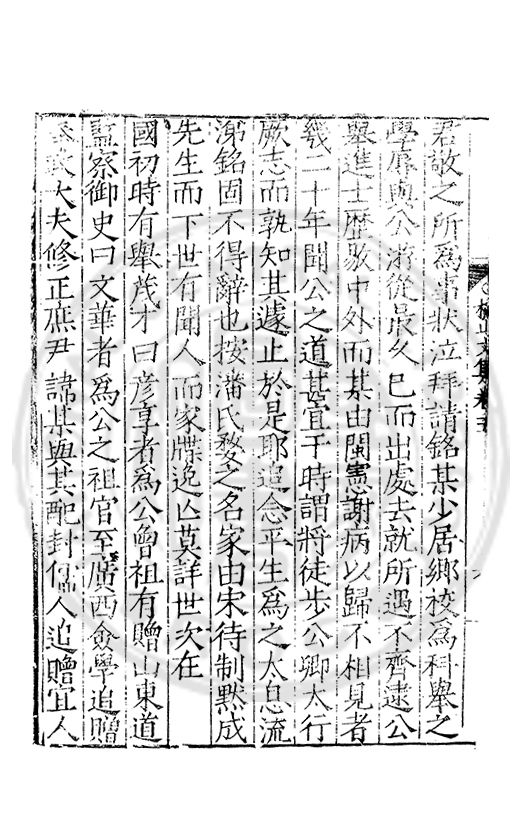 君敬之所爲事狀泣拜請銘某少居鄉校爲科舉之
學辱與公游從最久已而出處去就所遇不齊逮公
舉進士歷敭中外而某由閩憲謝病以歸不相見者
幾二十年聞公之道甚宜于時謂將徒步公卿大行
厥志而孰知其遽止於是耶追念平生爲之太息流
涕銘固不得辭也按潘氏婺之名家由宋待制默成
先生而下世有聞人而家牒逸亡莫詳世次在
國初時有舉茂才曰彦享者爲公曾祖有贈山東道
監察御史曰文華者爲公之祖官至廣西僉學追贈
大夫修正庶尹諱某與其配封孺人追贈宜人
山文集卷